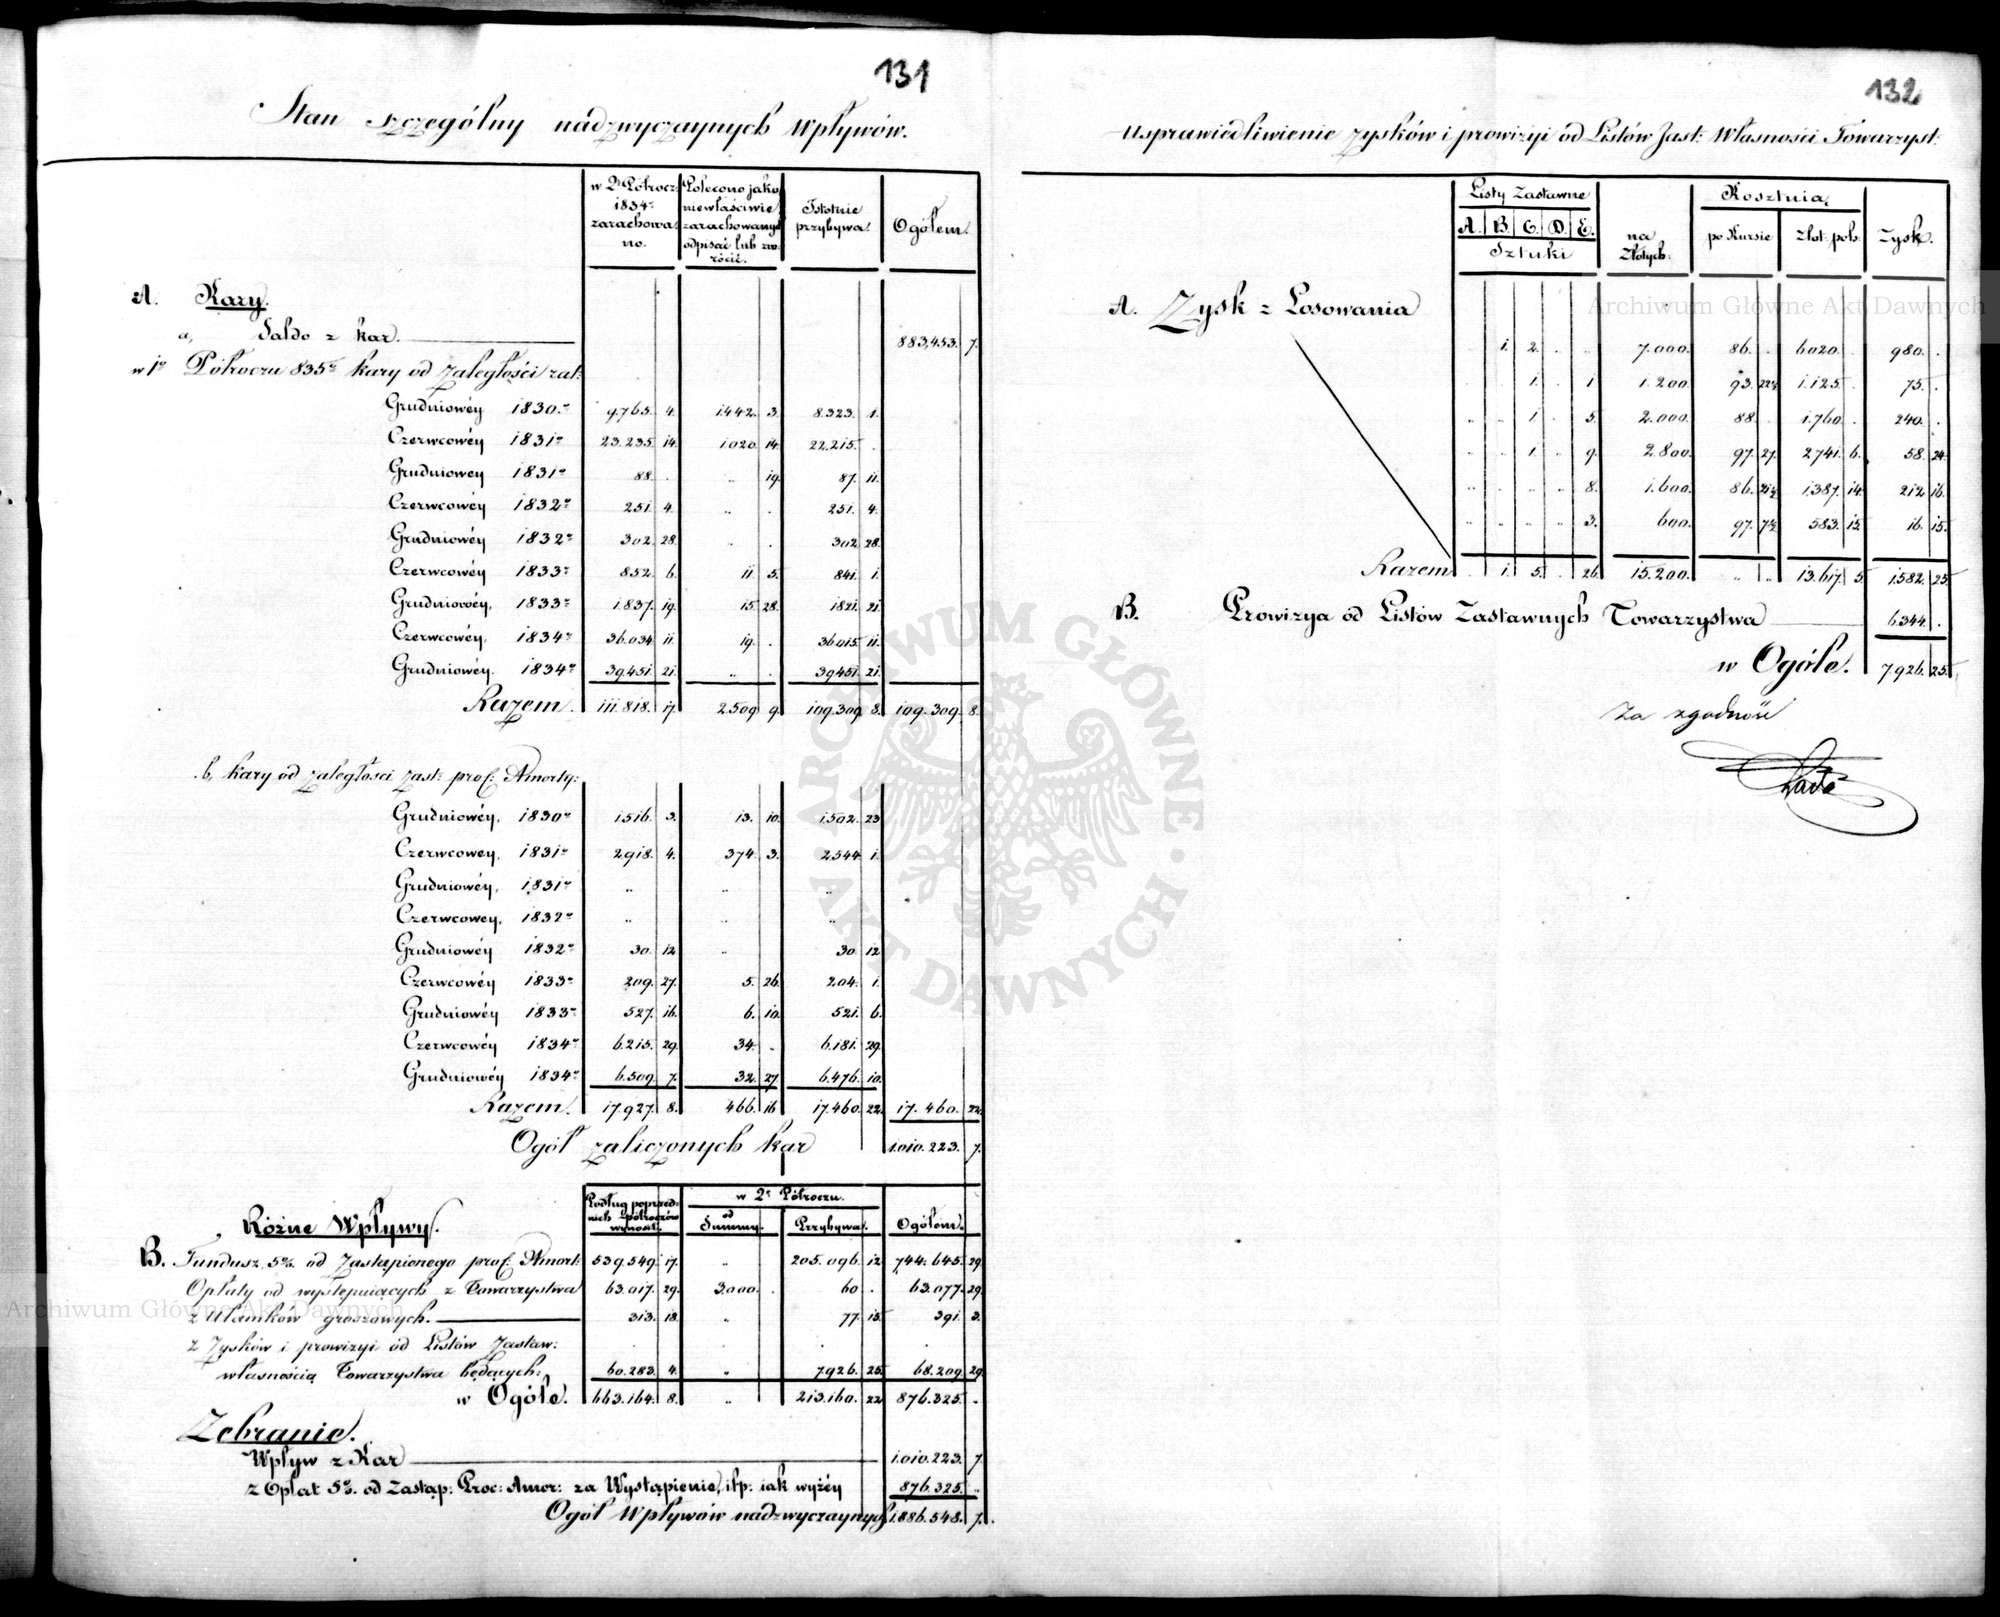 131
Stan szczególny nadzwyczaynych Wpływów.
w 2m Półrocz: 1834r zarachowano. | Polecono jako niewłaściwie zarachowanych odpisać lub zwrócić. | Istotnie przybywa. | Ogółem.
A. Kary.
a, Saldo z kar. 883,453. 7.
w 1m Półroczu 835r kary od zaległości zat:
Grudniowéy 1830r 9.765. 4. 1.442. 3. 8.323. 1.
Czerwcowéy 1831r 23.235. 14. 1.020. 14. 22.215. .
Grudniowey 1831r 88. . .. 19. 87. 11.
Czerwcowéy 1832r 251. 4. .. . 251. 4.
Grudniowéy 1832r 302. 28. .. . 302. 28.
Czerwcowéy 1833r 852. 6. 11. 5. 841. 1.
Grudniowéy, 1833r 1.837. 19. 15. 28. 1821. 21.
Czerwcowéy, 1834r 36.034. 11. 19. . 36.015. 11.
Grudniowéy. 1834r 39.451. 21. .. . 39451. 21.
Razem. 111.818. 17. 2.509 9. 109.309. 8. 109.309. 8.
b, kary od zaległości zast: proc: Amorty:
Grudniowéy, 1830r 1.516. 3. 13. 10. 1.502. 23
Czerwcowey, 1831r 2.918. 4. 374. 3. 2.544 1.
Grudniowéy, 1831r .. .. ..
Czerwcowey, 1832r .. .. ..
Grudniowéy 1832r 30. 12 .. 30. 12
Czerwcowéy 1833r 209. 27. 5. 26. 204. 1.
Grudniowéy 1833r 527. 16. 6. 10. 521. 6.
Czerwcowéy 1834r 6.215. 29. 34. . 6.181. 29.
Grudniowéy 1834r 6.509. 7. 32. 27 6.476. 10.
Razem. 17.927. 8. 466. 16 17.460. 22. 17.460. 22.
Ogół zaliczonych kar 1.010.223. 7.
Różne Wpływy.
Podług poprzednich Półroczów wynosił. | w 2m Półroczu. od Summy. | Przybywa. | Ogółem.
B. Fundusz 5%. od zastąpionego proc: Amort: 539.549. 17. .. 205.096. 12 744.645. 29.
Opłaty od występuiących z Towarzystwa 63.017. 29. 3.000. . 60 . 63.077. 29.
z Ułamków groszowych. 313. 18. .. 77. 15. 391. 3.
z Zysków i prowizyi od Listów Zastaw:
własnością Towarzystwa będących: 60.283. 4. .. 7.926. 25. 68.209. 29
w Ogóle. 663.164. 8. .. 213.160. 22 876.325. .
Zebranie.
Wpływ z Kar 1.010.223. 7.
z Opłat 5%. od Zastąp: Proc: Amor: za Wystąpienie, itp: iak wyżéy 876.325. ..
Ogół Wpływów nadzwyczaynych 1.886.548. 7.
132
Usprawiedliwienie zysków i prowizyi od Listów Zast: Własności Towarzyst:
Listy Zastawne A. B. C. D. E. Sztuki | na Złotych: | Kosztuią, po Kursie | Złot: pols: | Zysk.
A. Zysk z Losowania
1. 2. . .. 7.000. 86. . 6020. . 980. .
1. . 1 1.200. 93. 22½ 1.125. . 75. .
.. .. 1. .. 5. 2.000. 88. . 1.760. . 240. .
.. .. 1. .. 9. 2.800. 97. 27. 2.741. 6. 58. 24.
.. .. .. .. 8. 1.600. 86. 21½ 1.387. 14. 212. 16.
.. .. .. .. 3. 600. 97. 7½ 583. 15. 16. 15.
Razem . 1. 5. . 26. 15.200. .. .. 13.617. 5 1.582. 25
B. Prowizya od Listów Zastawnych Towarzystwa 6.344. .
w Ogóle. 7.926. 25.
Za zgodność
ARCHIWUM GŁÓWNE AKT DAWNYCH
Archiwum Główne Akt Dawnych
Archiwum Główne Akt Dawnych